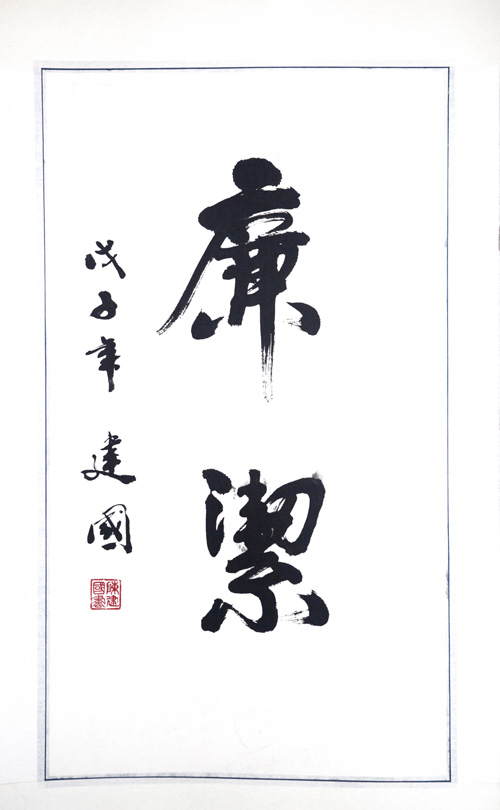 廉潔
戊子年 建國
陳建國書